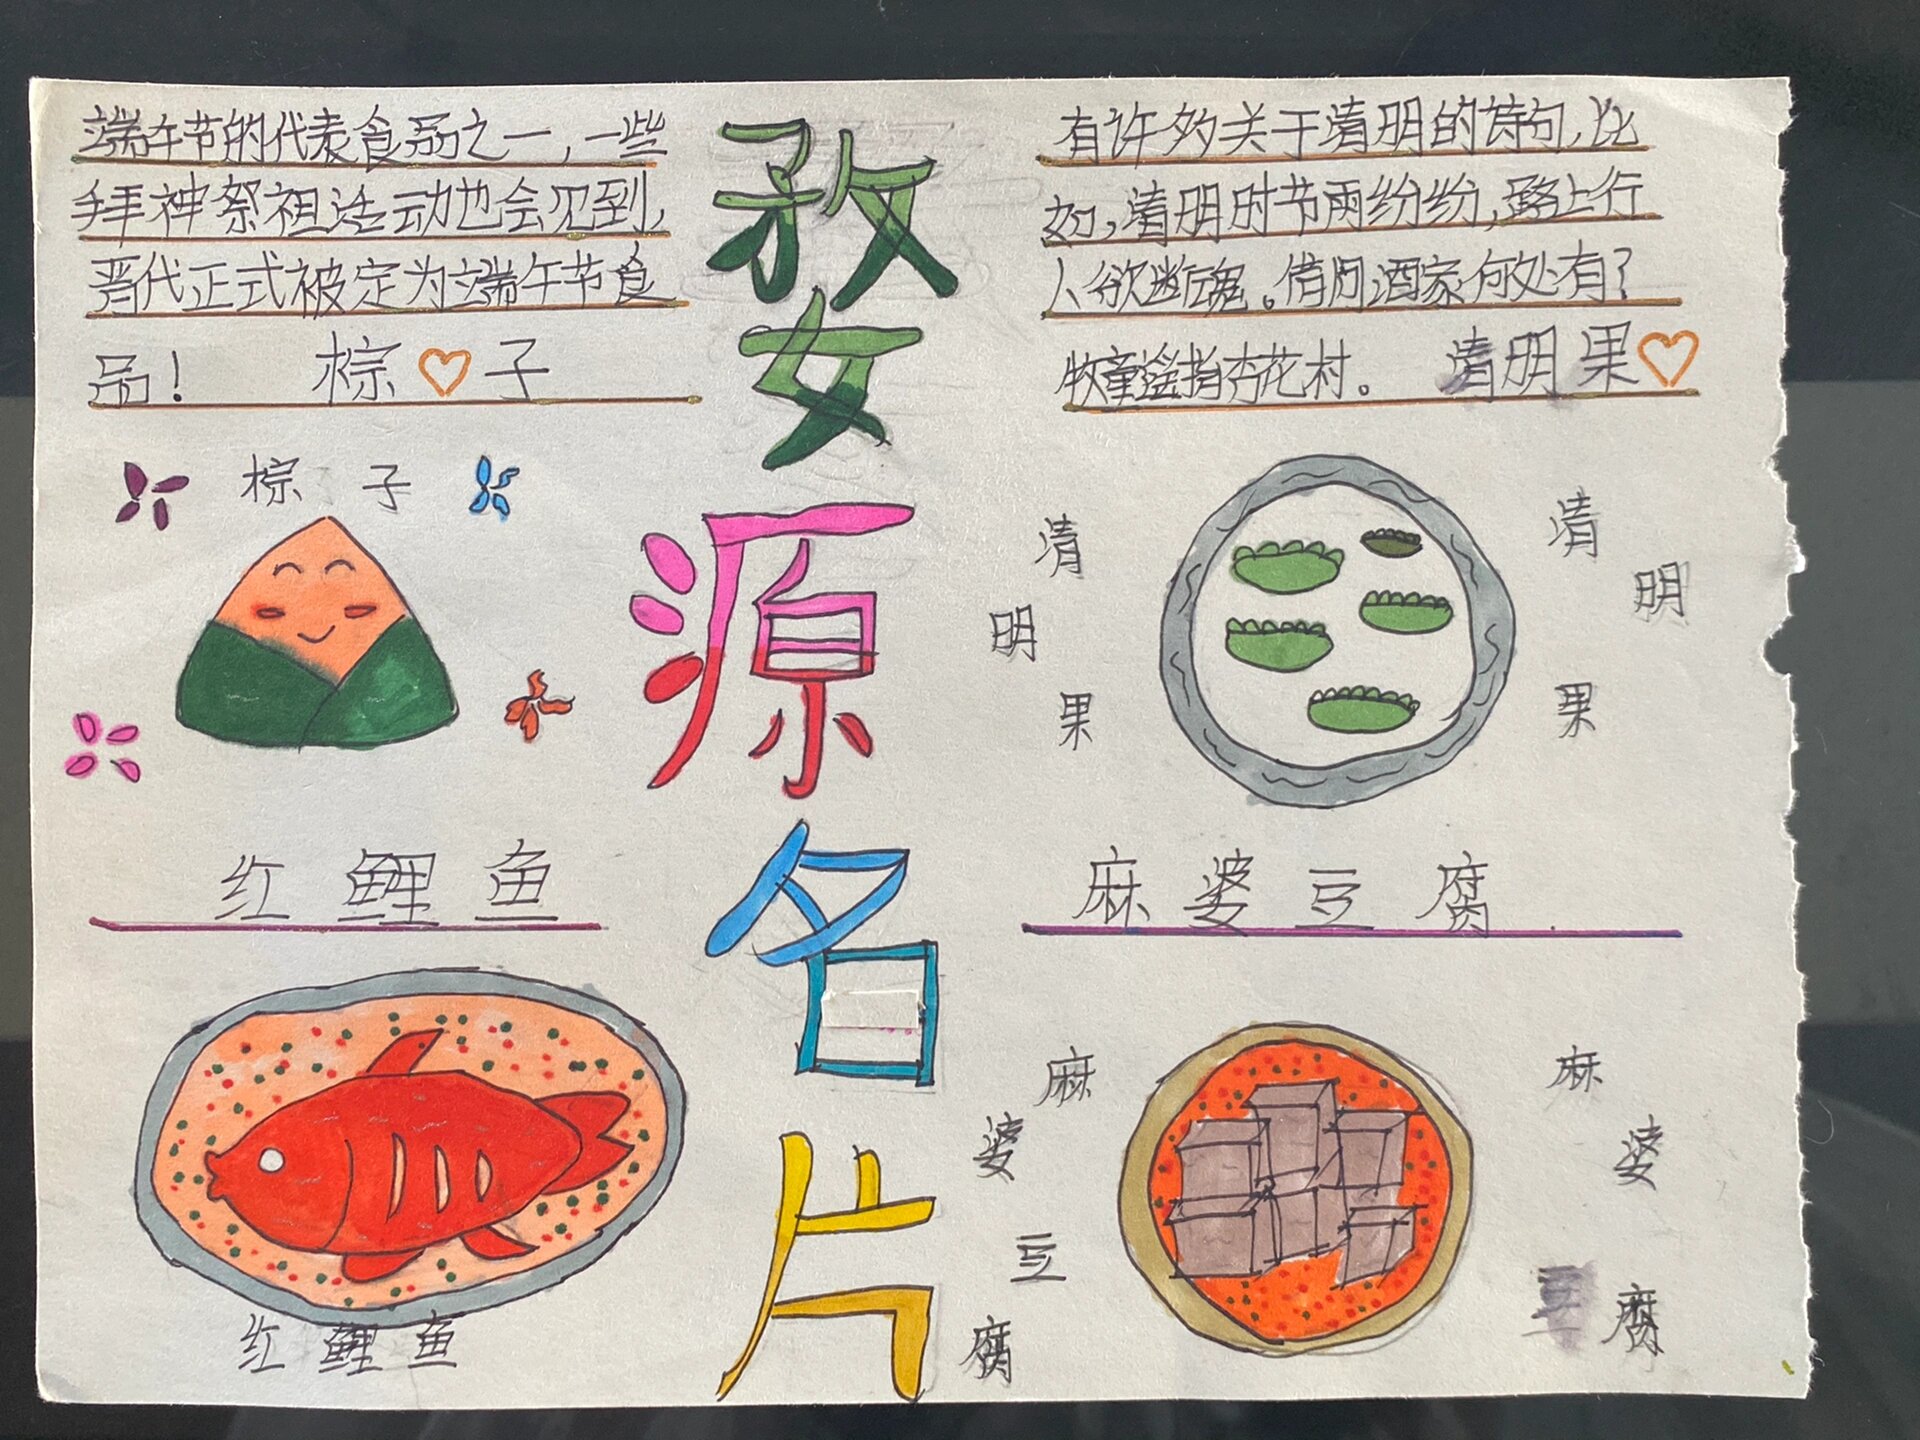 端午节的代表食品之一，一些
拜神祭祖活动也会见到，
晋代正式被定为端午节食
品！ 棕♡子
棕 子
红 鲤 鱼
红 鲤 鱼
婺
源
名
片
有许多关于清明的诗句，比
如，清明时节雨纷纷，路上行
人欲断魂。借问酒家何处有？
牧童遥指杏花村。 清明果♡
清
明
果
清
明
果
麻 婆 豆 腐
麻
婆
豆
腐
麻
婆
豆
腐